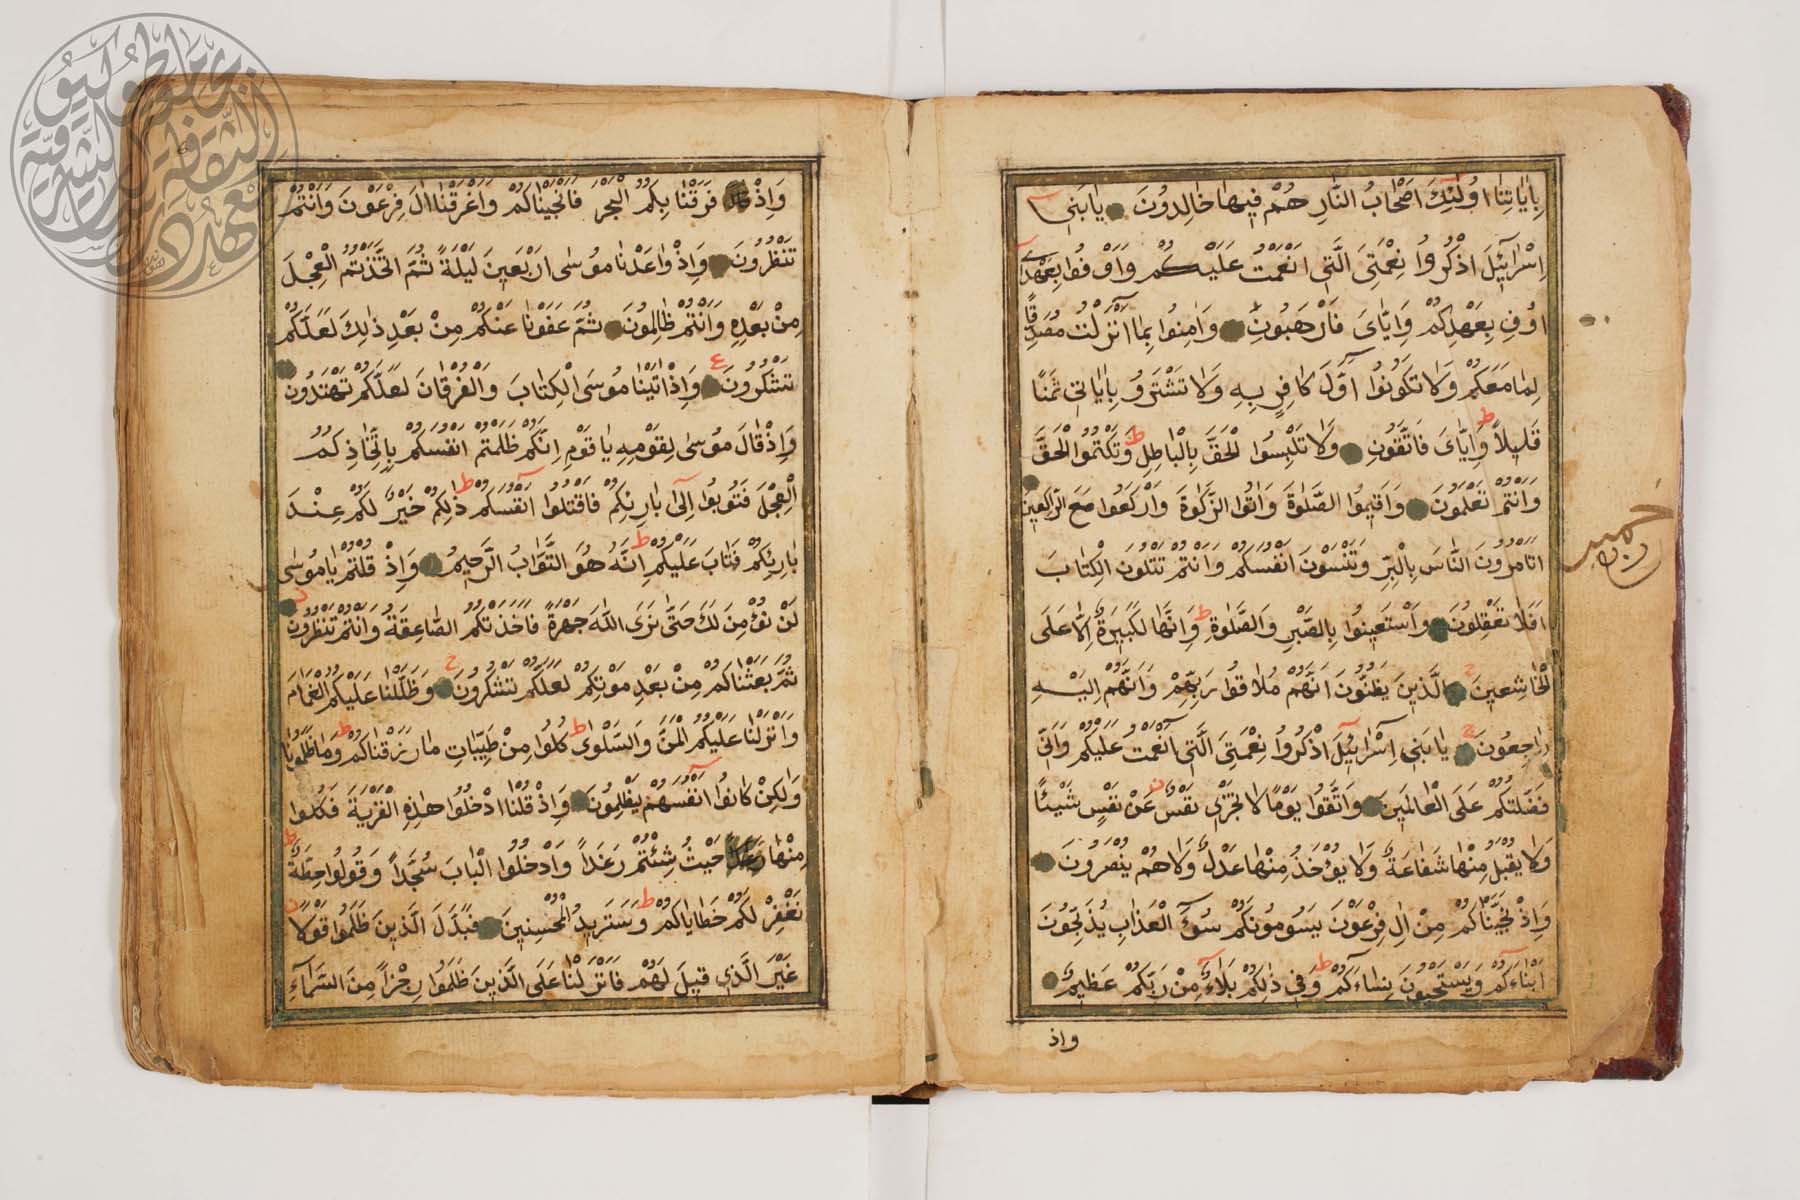 بِاٰيَاتِنَا اُولٰئِكَ اَصْحَابُ النَّارِ هُمْ فِيهَا خَالِدُونَ يَا بَنِي
اِسْرَآئِلَ اذْكُرُوا نِعْمَتِيَ الَّتِي اَنْعَمْتُ عَلَيْكُمْ وَاَوْفُوا بِعَهْدِي
اُوفِ بِعَهْدِكُمْ وَاِيَّايَ فَارْهَبُونِ وَاٰمِنُوا بِمَا اَنْزَلْتُ مُصَدِّقًا
لِمَا مَعَكُمْ وَلَا تَكُونُوا اَوَّلَ كَافِرٍ بِهِ وَلَا تَشْتَرُو بِاٰيَاتِي ثَمَنًا
قَلِيلاً وَاِيَّايَ فَاتَّقُونِ وَلَا تَلْبِسُوا الْحَقَّ بِالْبَاطِلِ وَتَكْتُمُوا الْحَقَّ
وَاَنْتُمْ تَعْلَمُونَ وَاَقِيمُوا الصَّلٰوةَ وَاٰتُوا الزَّكٰوةَ وَارْكَعُوا مَعَ الرَّاكِعِينَ
اَتَاْمُرُونَ النَّاسَ بِالْبِرِّ وَتَنْسَوْنَ اَنْفُسَكُمْ وَاَنْتُمْ تَتْلُونَ الْكِتَابَ
اَفَلَا تَعْقِلُونَ وَاسْتَعِينُوا بِالصَّبْرِ وَالصَّلٰوةِ وَاِنَّهَا لَكَبِيرَةٌ اِلَّا عَلَى
الْخَاشِعِينَ الَّذِينَ يَظُنُّونَ اَنَّهُمْ مُلَاقُوا رَبِّهِمْ وَاَنَّهُمْ اِلَيْهِ
رَاجِعُونَ يَا بَنِي اِسْرَائِلَ اذْكُرُوا نِعْمَتِيَ الَّتِي اَنْعَمْتُ عَلَيْكُمْ وَاَنِّي
فَضَّلْتُكُمْ عَلَى الْعَالَمِينَ وَاتَّقُوا يَوْمًا لَا تَجْزِي نَفْسٌ عَنْ نَفْسٍ شَيْئًا
وَلَا يُقْبَلُ مِنْهَا شَفَاعَةٌ وَلَا يُؤْخَذُ مِنْهَا عَدْلٌ وَلَا هُمْ يُنْصَرُونَ
وَاِذْ نَجَّيْنَاكُمْ مِنْ اٰلِ فِرْعَوْنَ يَسُومُونَكُمْ سُوءَ الْعَذَابِ يُذَبِّحُونَ
اَبْنَاءَكُمْ وَيَسْتَحْيُونَ نِسَاءَكُمْ وَفِي ذٰلِكُمْ بَلَاءٌ مِنْ رَبِّكُمْ عَظِيمٌ
واذ
وَاِذْ فَرَقْنَا بِكُمُ الْبَحْرَ فَاَنْجَيْنَاكُمْ وَاَغْرَقْنَا اٰلَ فِرْعَوْنَ وَاَنْتُمْ
تَنْظُرُونَ وَاِذْ وَاعَدْنَا مُوسٰى اَرْبَعِينَ لَيْلَةً ثُمَّ اتَّخَذْتُمُ الْعِجْلَ
مِنْ بَعْدِهِ وَاَنْتُمْ ظَالِمُونَ ثُمَّ عَفَوْنَا عَنْكُمْ مِنْ بَعْدِ ذٰلِكَ لَعَلَّكُمْ
تَشْكُرُونَ وَاِذْ اٰتَيْنَا مُوسَى الْكِتَابَ وَالْفُرْقَانَ لَعَلَّكُمْ تَهْتَدُونَ
وَاِذْ قَالَ مُوسٰى لِقَوْمِهِ يَا قَوْمِ اِنَّكُمْ ظَلَمْتُمْ اَنْفُسَكُمْ بِاتِّخَاذِكُمُ
الْعِجْلَ فَتُوبُوا اِلٰى بَارِئِكُمْ فَاقْتُلُوا اَنْفُسَكُمْ ذٰلِكُمْ خَيْرٌ لَكُمْ عِنْدَ
بَارِئِكُمْ فَتَابَ عَلَيْكُمْ اِنَّهُ هُوَ التَّوَّابُ الرَّحِيمُ وَاِذْ قُلْتُمْ يَا مُوسٰى
لَنْ نُؤْمِنَ لَكَ حَتَّى نَرَى اللّٰهَ جَهْرَةً فَاَخَذَتْكُمُ الصَّاعِقَةُ وَاَنْتُمْ تَنْظُرُونَ
ثُمَّ بَعَثْنَاكُمْ مِنْ بَعْدِ مَوْتِكُمْ لَعَلَّكُمْ تَشْكُرُونَ وَظَلَّلْنَا عَلَيْكُمُ الْغَمَامَ
وَاَنْزَلْنَا عَلَيْكُمُ الْمَنَّ وَالسَّلْوٰى كُلُوا مِنْ طَيِّبَاتِ مَا رَزَقْنَاكُمْ وَمَا ظَلَمُونَا
وَلٰكِنْ كَانُوا اَنْفُسَهُمْ يَظْلِمُونَ وَاِذْ قُلْنَا ادْخُلُوا هٰذِهِ الْقَرْيَةَ فَكُلُوا
مِنْهَا حَيْثُ شِئْتُمْ رَغَداً وَادْخُلُوا الْبَابَ سُجَّداً وَقُولُوا حِطَّةٌ
نَغْفِرْ لَكُمْ خَطَايَاكُمْ وَسَنَزِيدُ الْمُحْسِنِينَ فَبَدَّلَ الَّذِينَ ظَلَمُوا قَوْلًا
غَيْرَ الَّذِي قِيلَ لَهُمْ فَاَنْزَلْنَا عَلَى الَّذِينَ ظَلَمُوا رِجْزاً مِنَ السَّمَاءِ